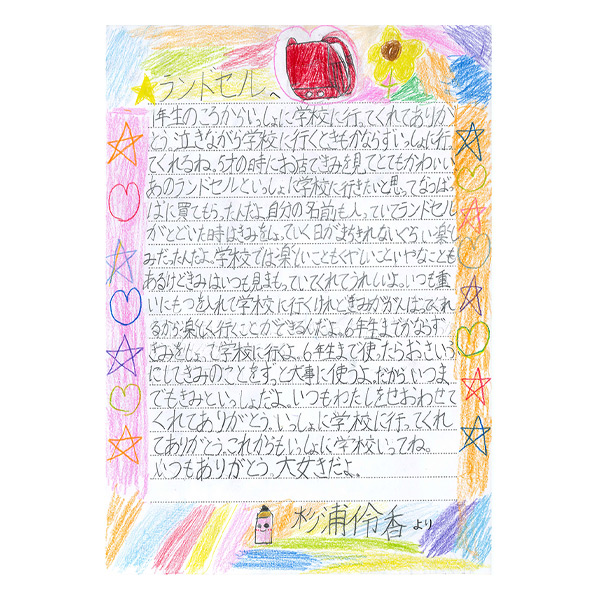 ランドセルへ
1年生のころからいっしょに学校に行ってくれてありが
とう。泣きながら学校に行くときもかならずいっしょに行っ
てくれるね。5才の時にお店できみを見てとてもかわいい
あのランドセルといっしょに学校に行きたいと思ってならぱっ
ぱに買てもらったんだよ。自分の名前も入っていてランドセル
がとどいた時はきみをしょっていく日がまちきれないぐらい楽し
みだったんだよ。学校では楽しいこともくやしいこといやなことも
あるけどきみはいつも見まもっていてくれてうれしいよ。いつも重
いにもつを入れて学校に行くけれどきみががんばってくれ
るから楽しく行くことができるんだよ。6年生までかならず
きみをしょって学校に行くよ。6年生まで使ったらおさいふ
にしてきみのことをずっと大事に使うよ。だからいつま
でもきみといっしょだよ。いつもわたしをせおわせて
くれてありがとう。いっしょに学校に行ってくれ
てありがとう。これからもいっしょに学校いってね。
いつもありがとう。大好きだよ。
杉浦伶香より